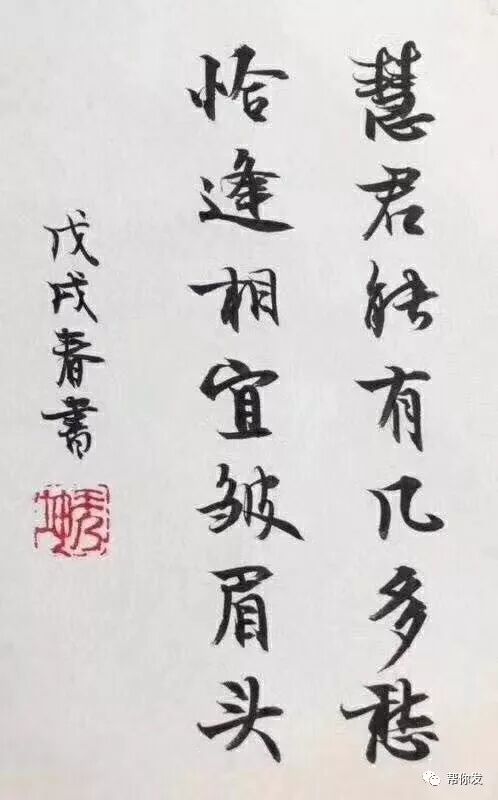 慧君能有几多愁
恰逢相宜皱眉头
戊戌春書
帮你发